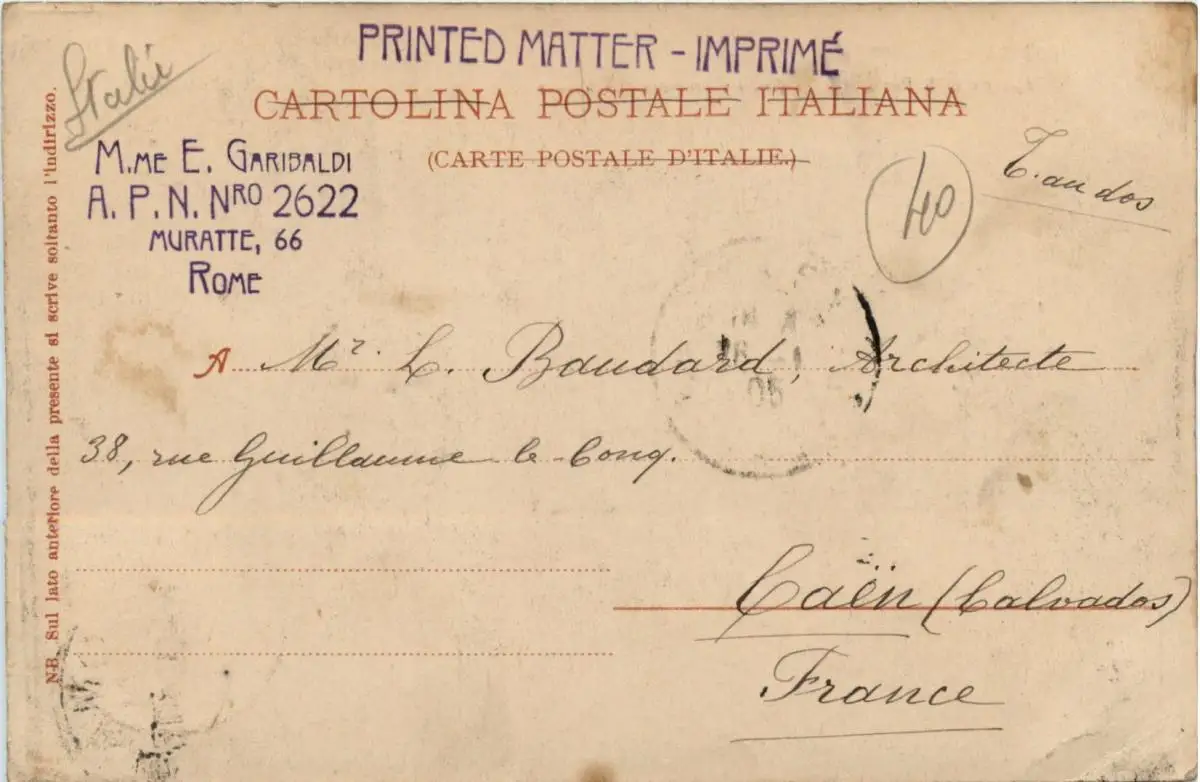 PRINTED MATTER - IMPRIMÉ
Italie
CARTOLINA POSTALE ITALIANA
(CARTE POSTALE D'ITALIE.)
M.ME E. GARIBALDI
A. P. N. NRO 2622
MURATTE, 66
ROME
40
T. au dos
A Mr. L. Baudard, Architecte
38, rue Guillaume le Conq.
Caën (Calvados)
France
N-B Sul lato anteriore della presente si scrive soltanto l'indirizzo.